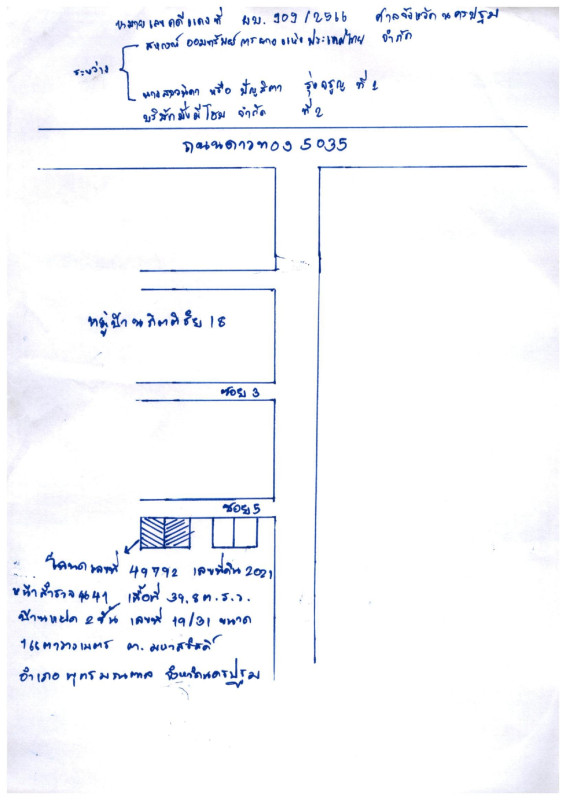 หมายเลขคดีแดงที่ ผบ. 909/2566 ศาลจังหวัดนครปฐม
สหกรณ์ออมทรัพย์การยางแห่งประเทศไทย จำกัด
ระหว่าง
นางสาวนิดา หรือ ปัญสิตา รุ่งจรูญ ที่ 1
บริษัท มั่งมีโฮม จำกัด ที่ 2
ถนนดาวทอง 5035
หมู่บ้านกิตติชัย 18
ซอย 3
ซอย 5
โฉนดเลขที่ 49792 เลขที่ดิน 2021
หน้าสำรวจ 4641 เนื้อที่ 39.8 ต.ร.ว.
บ้านแฝด 2 ชั้น เลขที่ 19/31 ขนาด
166 ตารางเมตร ต. มหาสวัสดิ์
อำเภอพุทธมณฑล จังหวัดนครปฐม